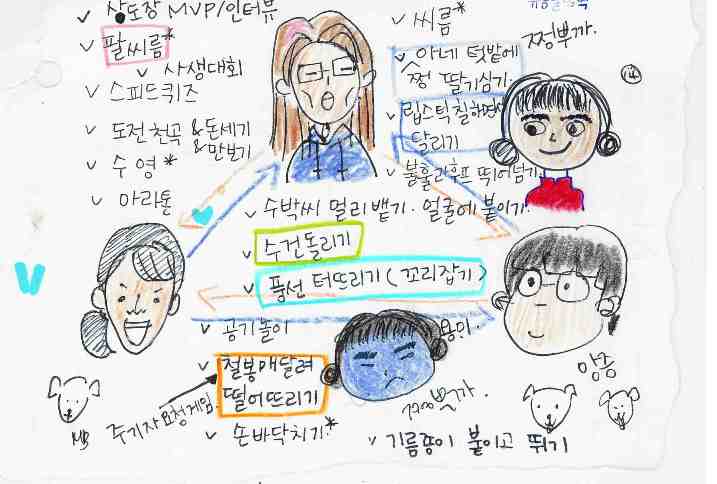 v 상도장 MVP/인터뷰
v 팔씨름*
v 사생대회
v 스피드퀴즈
v 도전천곡 & 돈세기
& 만보기
v 수영*
v 아라톤
v 씨름*
v 아네 텃밭에
쩡 딸기심기.
v 립스틱칠하면서
달리기
v 불훌라후프 뛰어넘기
쩡뿌까.
14
v 수박씨 멀리뱉기. 얼굴에 붙이기.
v 수건돌리기
v 풍선 터뜨리기 (꼬리잡기)
v 공기놀이
v 철봉매달려
떨어뜨리기
v 손바닥치기*
주기자 요청게임.
MB
용미.
앙송
v 기름종이 붙이고 뛰기